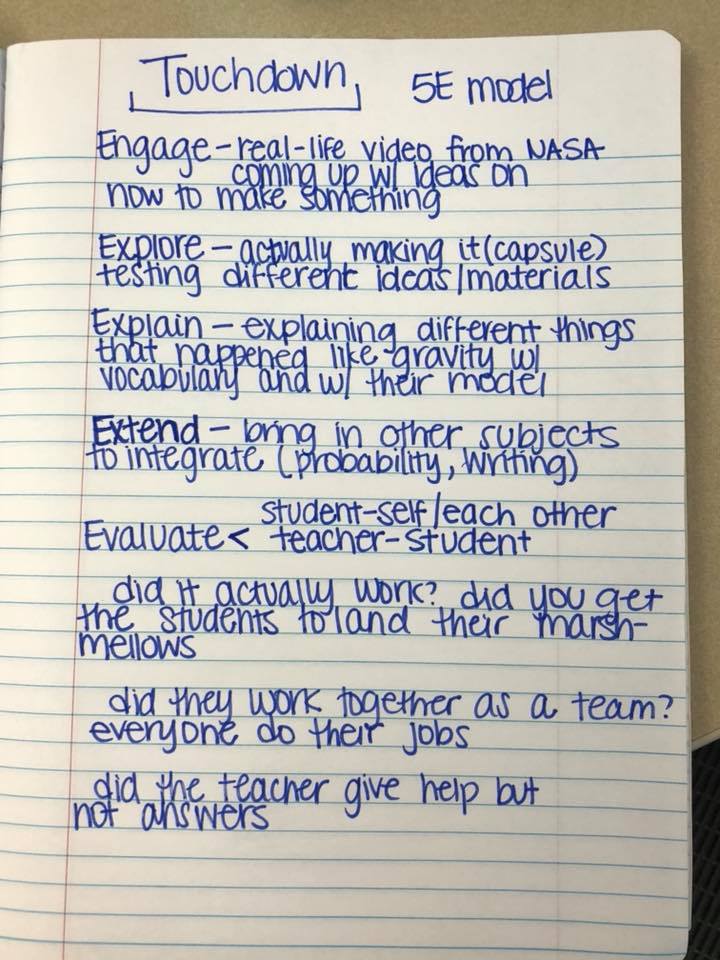 Touchdown 5E model
Engage - real-life video from NASA
coming up w/ ideas on
how to make something
Explore - actually making it (capsule)
testing different ideas/materials
Explain - explaining different things
that happened like gravity w/
vocabulary and w/ their model
Extend - bring in other subjects
to integrate (probability, writing)
student-self/each other
Evaluate < teacher-student
did it actually work? did you get
the students to land their marsh-
mellows
did they work together as a team?
everyone do their jobs
did the teacher give help but
not answers